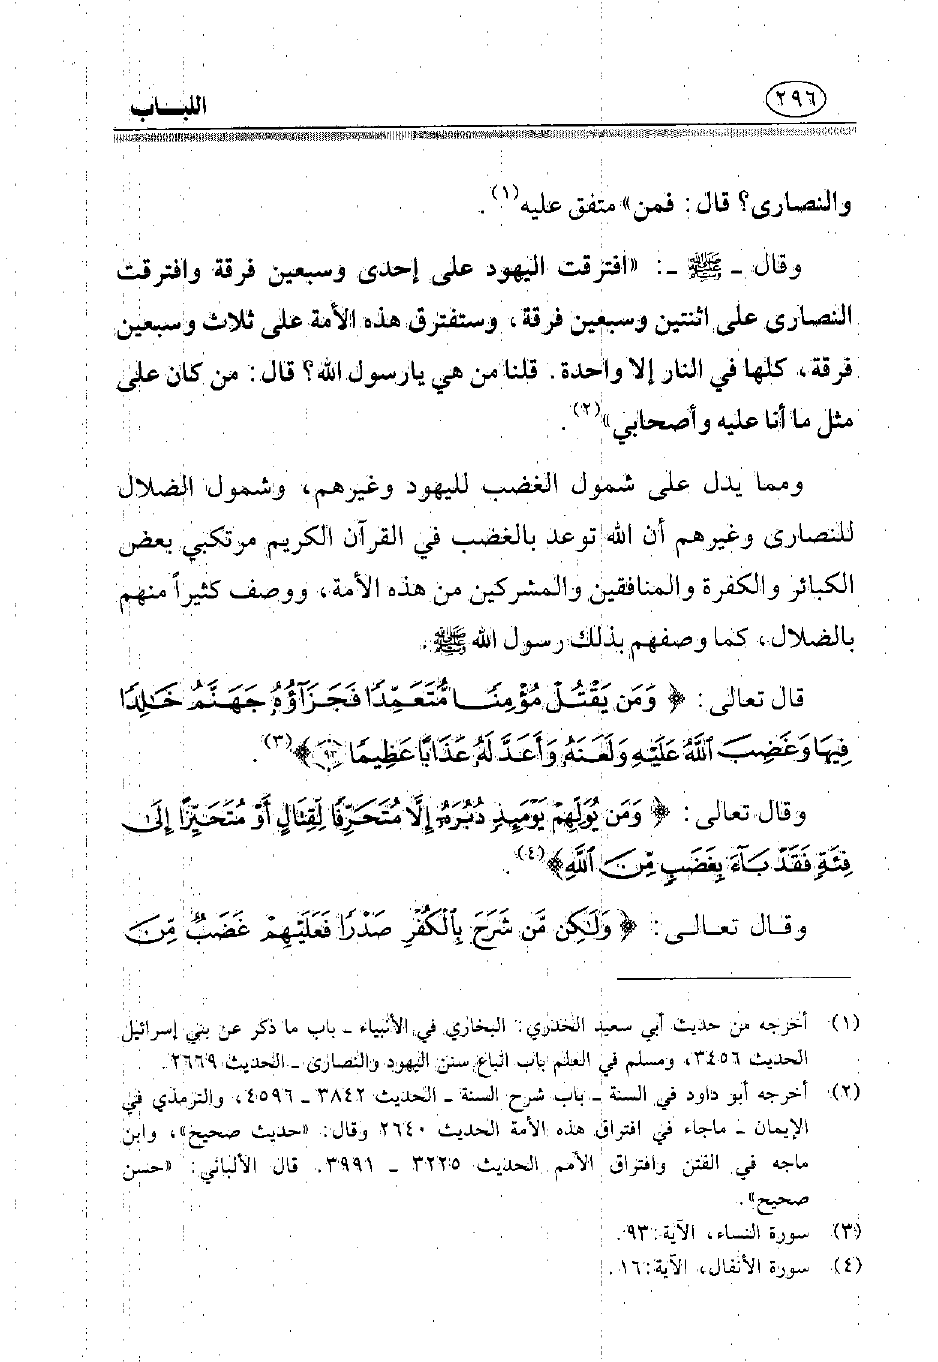 ٢٩٦
اللبـــاب
والنصارى؟ قال: فمن» متفق عليه(١).
وقال ـ ﷺ ـ: «افترقت اليهود على إحدى وسبعين فرقة وافترقت
النصارى على اثنتين وسبعين فرقة، وستفترق هذه الأمة على ثلاث وسبعين
فرقة، كلها في النار إلا واحدة. قلنا من هي يارسول الله؟ قال: من كان على
مثل ما أنا عليه وأصحابي»(٢).
ومما يدل على شمول الغضب لليهود وغيرهم، وشمول الضلال
للنصارى وغيرهم أن الله توعد بالغضب في القرآن الكريم مرتكبي بعض
الكبائر والكفرة والمنافقين والمشركين من هذه الأمة، ووصف كثيراً منهم
بالضلال، كما وصفهم بذلك رسول الله ﷺ.
قال تعالى: ﴿وَمَن يَقْتُلْ مُؤْمِنًا مُّتَعَمِّدًا فَجَزَآؤُهُ جَهَنَّمُ خَالِدًا
فِيهَا وَغَضِبَ ٱللَّهُ عَلَيْهِ وَلَعَنَهُ وَأَعَدَّ لَهُ عَذَابًا عَظِيمًا ٩٣﴾(٣).
وقال تعالى: ﴿وَمَن يُوَلِّهِمْ يَوْمَئِذٍ دُبُرَهُ إِلَّا مُتَحَرِّفًا لِّقِتَالٍ أَوْ مُتَحَيِّزًا إِلَىٰ
فِئَةٍ فَقَدْ بَآءَ بِغَضَبٍ مِّنَ ٱللَّهِ﴾(٤).
وقال تعالى: ﴿وَلَٰكِن مَّن شَرَحَ بِٱلْكُفْرِ صَدْرًا فَعَلَيْهِمْ غَضَبٌ مِّنَ
(١) أخرجه من حديث أبي سعيد الخدري: البخاري في الأنبياء ـ باب ما ذكر عن بني إسرائيل
الحديث ٣٤٥٦، ومسلم في العلم باب اتباع سنن اليهود والنصارى ـ الحديث ٢٦٦٩.
(٢) أخرجه أبو داود في السنة ـ باب شرح السنة ـ الحديث ٣٨٤٢ ـ ٤٥٩٦، والترمذي في
الإيمان ـ ماجاء في افتراق هذه الأمة الحديث ٢٦٤٠ وقال: «حديث صحيح»، وابن
ماجه في الفتن وافتراق الأمم الحديث ٣٢٢٥ ـ ٣٩٩١. قال الألباني: «حسن
صحيح».
(٣) سورة النساء، الآية: ٩٣.
(٤) سورة الأنفال، الآية: ١٦.